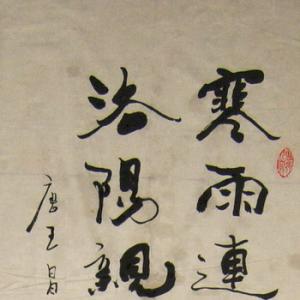 寒雨連
洛陽親
唐王昌